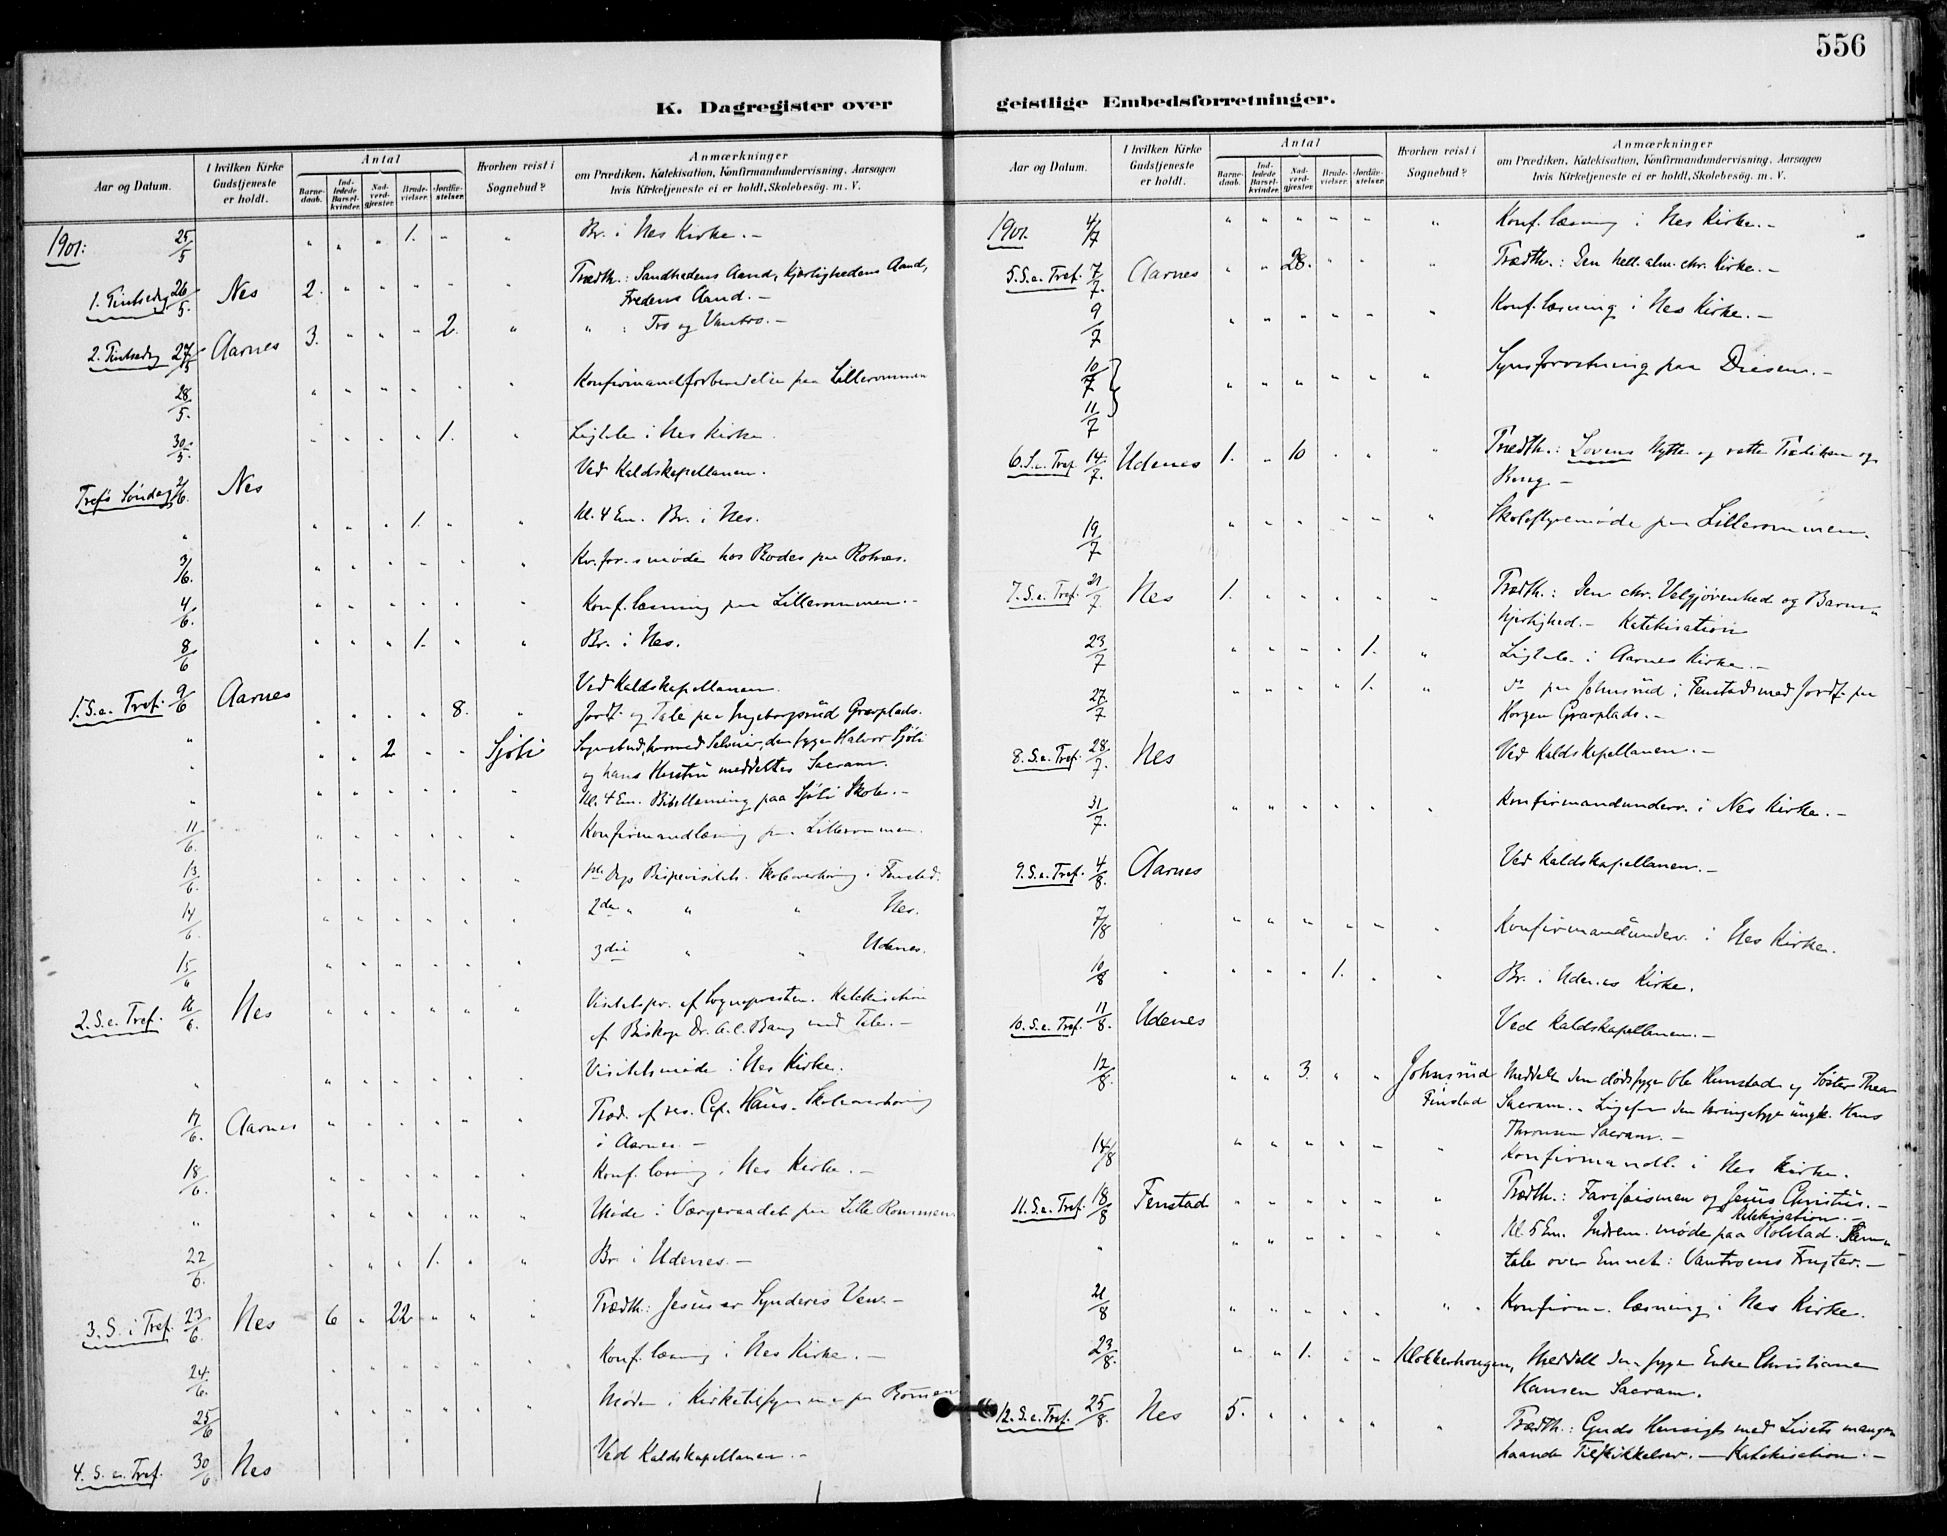 556
K. Dagregister over
geistlige Embedsforretninger.
Aar og Datum.
I hvilken Kirke Gudstjeneste er holdt.
Antal
Barnedaab.
Indledede Barselkvinder.
Nadverdgjæster.
Brudevielser.
Jordfæstelser.
Hvorhen reist i Sognebud?
Anmærkninger
om Prædiken, Katekisation, Konfirmandundervisning, Aarsagen
hvis Kirketjeneste ei er holdt, Skolebesøg, m. V.
1901: 25/5 " " " 1. " " Br. i Nes Kirke. –
1. Pintsedag 26/5. Nes 2. " " " " " Prædth.: Sandhedens Aand, Kjærlighedens Aand,
Fredens Aand. –
2. Pintsedag 27/5 Aarnes 3. " " " 2. " " : Tro og Vantro. –
28/5. " " " " " " Konfirmandforberedelse paa Lillerommen
30/5. " " " " 1. " Ligtale i Nes Kirke.
Trefs Søndag 2/6. Nes Ved Kaldskapellanen.
" " " " 1. " " Kl. 4 Em. Br. i Nes.
3/6. " " " " " " møde hos Rodes paa
4/6. " " " " " " Konf.læsning paa Lillerommen. –
8/6 " " " 1. " " Br. i Nes.
1. S. e. Tref. 9/6 Aarnes Ved Kaldskapellanen.
" " " " " 8. " Jordf. og Tale paa Ingeborgsrud Gravplads.
" " " 2 " " Sjøli Sognebud, hvorved den syge Halvor Sjøli
og hans Hustru meddeltes Sacram.
" " " " " " " Kl. 4 Em. Bibellæsning paa Sjøli Skole. –
11/6. " " " " " " Konfirmandlæsning paa Lillerommen.
13/6. " " " " " " 1ste Dags Bispevisitats. Skoleoverhøring i Fenstad.
14/6. " " " " " " 2den " " " Nes.
15/6 " " " " " " 3die " " Udenes.
2. S. e. Tref. 16/6. Nes " " " " " " Visitatspr. af Sognepræsten. Katekisation
af Biskop Dr. A. C. Bang med Tale. –
" " " " " " " Visitatsmøde i Nes Kirke.
17/6. Aarnes " " " " " " Præd. af res. Cap. Haus. Skoleoverhøring
i Aarnes –
18/6. " " " " " " Konf.læsning i Nes Kirke. –
" " " " " " " Møde i Værgeraadet paa Lille Rommen
22/6. " " " 1. " " Br. i Udenes. –
3. S. i Tref. 23/6. Nes 6 " 22 " " " Prædth: Jesus er Synderes Ven. –
24/6. " " " " " " Konf.læsning i Nes Kirke. –
25/6 " " " " " " Møde i Kirketilsynet paa Rommen
4. S. e. Tref. 30/6 Nes Ved Kaldskapellanen. –
Aar og Datum.
I hvilken Kirke Gudstjeneste er holdt.
Antal
Barnedaab.
Indledede Barselkvinder.
Nadverdgjæster.
Brudevielser.
Jordfæstelser.
Hvorhen reist i Sognebud?
Anmærkninger
om Prædiken, Katekisation, Konfirmandundervisning, Aarsagen
hvis Kirketjeneste ei er holdt, Skolebesøg, m. V.
1901. 4/7 " " " " " " Konf.læsning i Nes Kirke. –
5. S. e. Tref. 7/7. Aarnes " " 28. " " " Prædth.: Den hell. alm. chr. Kirke. –
9/7 " " " " " " Konf.læsning i Nes Kirke. –
10/7 11/7 " " " " " " Synsforretning paa Diesen. –
6. S. e. Tref 14/7. Udenes 1. " 10 " " " Prædth.: Lovens Nytte og rette Prædiken og
Brug. –
19/7 " " " " " " Skolestyremøde paa Lillerommen.
7. S. e. Tref. 21/7 Nes 1. " " " " " Prædth.: Den chr. Velgjørenhed og Barm-
hjertighed. – Katekisation
23/7 " " " " 1. " Ligtale i Aarnes Kirke. –
27/7 " " " " 1. " do paa Johnsrud i Fenstad med Jordf. paa
Horgen Gravplads. –
8. S. e. Tref. 28/7. Nes Ved Kaldskapellanen. –
31/7. " " " " " " Konfirmandunderv. i Nes Kirke. –
9. S. e. Tref. 4/8. Aarnes Ved Kaldskapellanen. –
7/8 " " " " " " Konfirmandunderv. i Nes Kirke.
10/8 " " " 1. " " Br. i Udenes Kirke.
10. S. e. Tref. 11/8. Udenes Ved Kaldskapellanen. –
12/8. " " 3. " " Johnsrud Fenstad Meddelt den dødssyge Ole Hunstad og Søster Thea
Sacram. – Ligesaa den bringesyge ungk. Hans
Thronsen Sacram. –
14/8 " " " " " " Konfirmandl. i Nes Kirke.
11. S. e. Tref. 18/8 Fenstad " " " " " " Prædth.: Farisæismen og Jesus Christus. –
Katekisation. –
" " " " " " " Kl. 5 Em. Indrem. møde paa Holstad. Sam-
tale over Emnet: Vantroens Frugter. –
21/8 " " " " " " Konfirm.læsning i Nes Kirke.
23/8. " " 1. " " Klokkerhougen, Meddelt den syge Enke Christiane
Hansen Sacram.
12. S. e. Tref. 25/8. Nes 5. " " " " " Prædth.: Guds Hensigt med Livets mange-
haande Tilskikkelser. – Katekisation. –